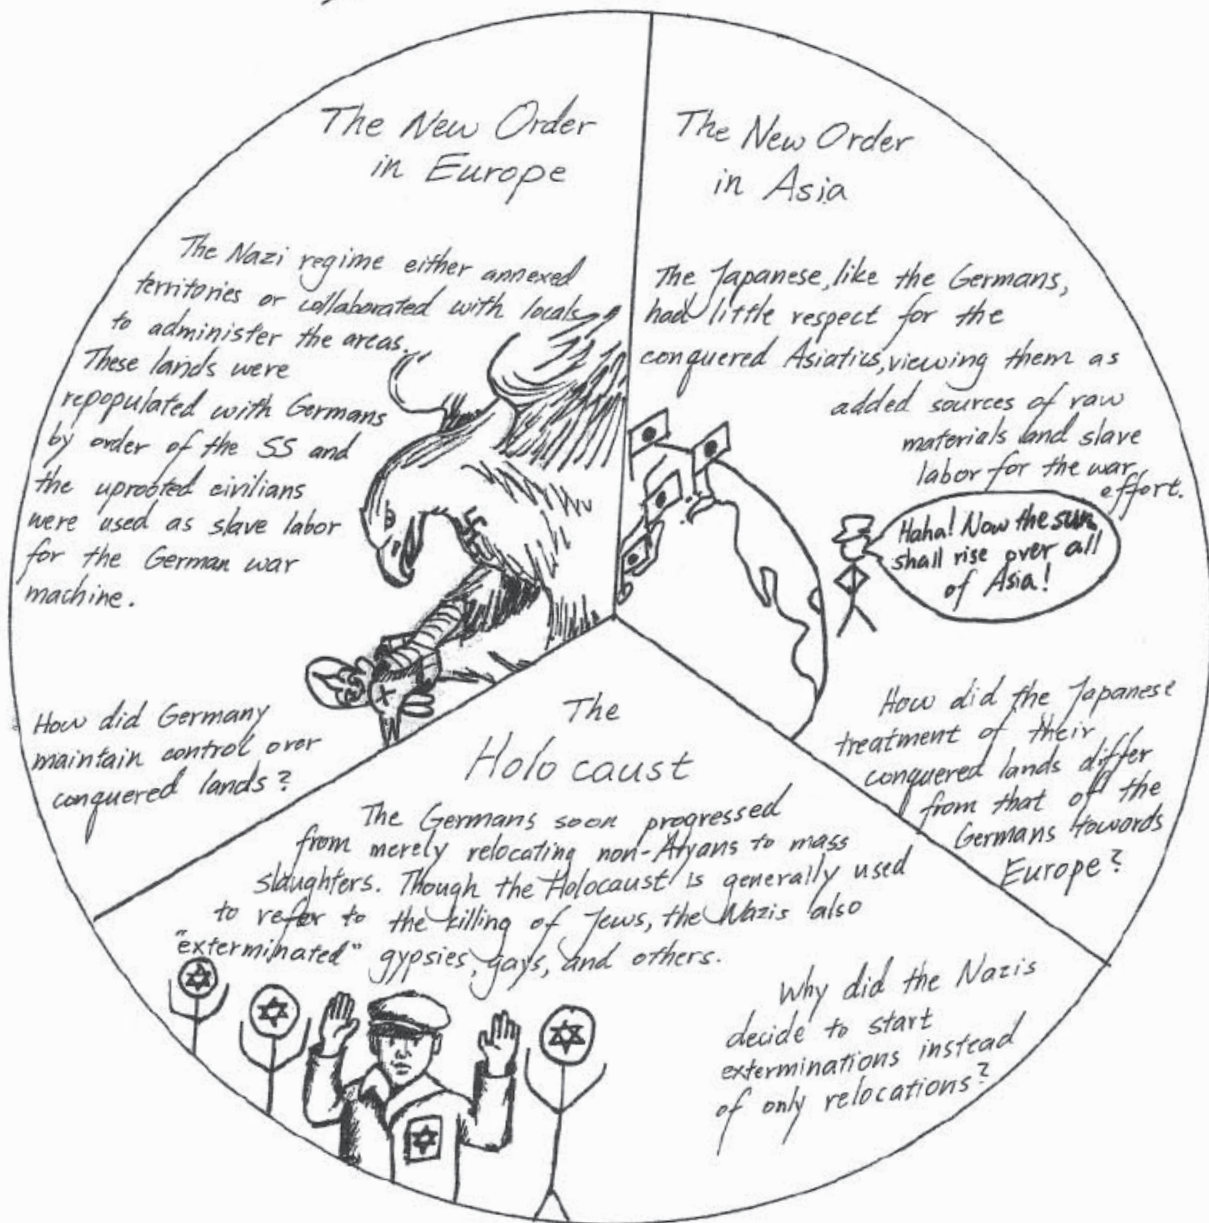 The New Order
in Europe
The Nazi regime either annexed
territories or collaborated with locals
to administer the areas.
These lands were
repopulated with Germans
by order of the SS and
the uprooted civilians
were used as slave labor
for the German war
machine.
How did Germany
maintain control over
conquered lands?
The New Order
in Asia
The Japanese, like the Germans,
had little respect for the
conquered Asiatics, viewing them as
added sources of raw
materials and slave
labor for the war
effort.
Haha! Now the sun
shall rise over all
of Asia!
How did the Japanese
treatment of their
conquered lands differ
from that of the
Germans towords
Europe?
The
Holocaust
The Germans soon progressed
from merely relocating non-Aryans to mass
slaughters. Though the Holocaust is generally used
to refer to the killing of Jews, the Nazis also
"exterminated" gypsies, gays, and others.
Why did the Nazis
decide to start
exterminations instead
of only relocations?